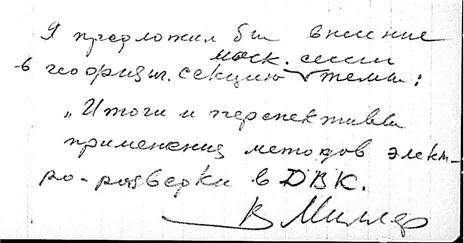 Я предложил бы внесение
моск. сессии
в геофизич. секцию темы:
"Итоги и перспективы
применения методов элект-
ро-разведки в ДВК.
В Миллер